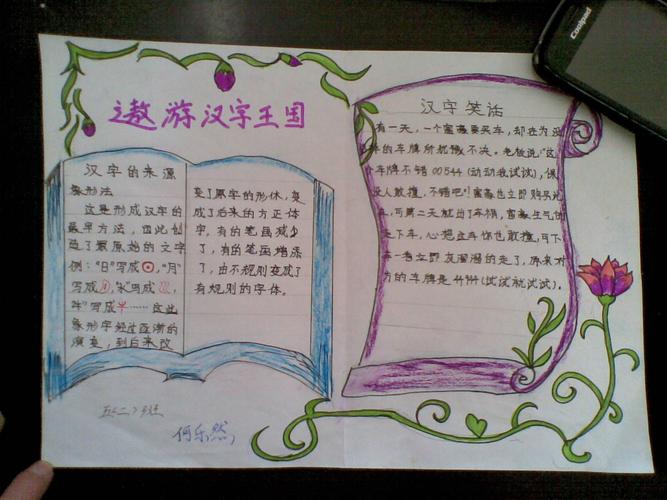 遨游汉字王国
汉字的来源
象形法
这是形成汉字的
最早方法，由此创
造了最原始的文字
例："日"写成 ，"月"
写成 ，"水"写成 ，
写成 …… 这些
象形字经过逐渐的
演变，到后来改
变了原字的形体，变
成了后来的方正体
字，有的笔画减少
了，有的笔画增添
了，由不规则变成了
有规则的字体。
汉字笑话
有一天，一个富豪要买车，却在为没
的车牌所犹豫不决。老板说："这
个车牌不错00544（动动我试试），保
没人敢撞，不错吧！富豪也立即购买
，可第二天就出了车祸，富豪生气的
走下车，心想 你也敢撞，可下
车一看立即灰溜溜的走了，原来对
方的车牌是44944（试试就试试）。
五（二）班
何乐然
Coolpad